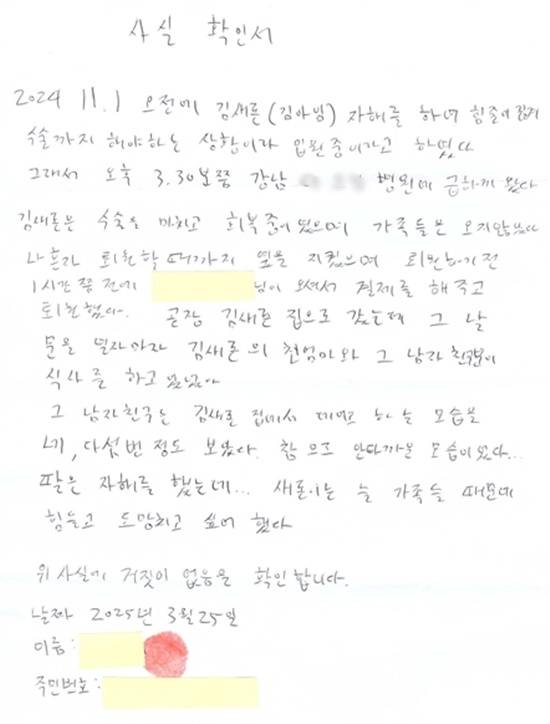 사실 확인서
2024 11.1 오전에 김새론(김아임) 자해를 하여 힘줄이 끊겨
수술까지 해야하는 상황이라 입원중이라고 하였다
그래서 오후 3.30분쯤 강남 병원에 급하게 왔다
김새론은 수술을 마치고 회복중이었으며 가족들은 오지않았다
나혼자 퇴원할때까지 옆을 지켰으며 퇴원하기전
1시간쯤 전에 님이 오셔서 결제를 해주고
퇴원했다. 곧장 김새론 집으로 갔는데 그 날
문을 열자마자 김새론의 친엄마와 그 남자친구분이
식사를 하고 있었다
그 남자친구는 김새론 집에서 하는 모습을
네, 다섯번 정도 보았다. 참으로 안타까운 모습이었다...
팔은 자해를 했는데... 새론이는 늘 가족들 때문에
힘들고 도망치고 싶어 했다
위 사실에 거짓이 없음을 확인합니다.
날짜 2025년 3월 25일
이름:
주민번호: